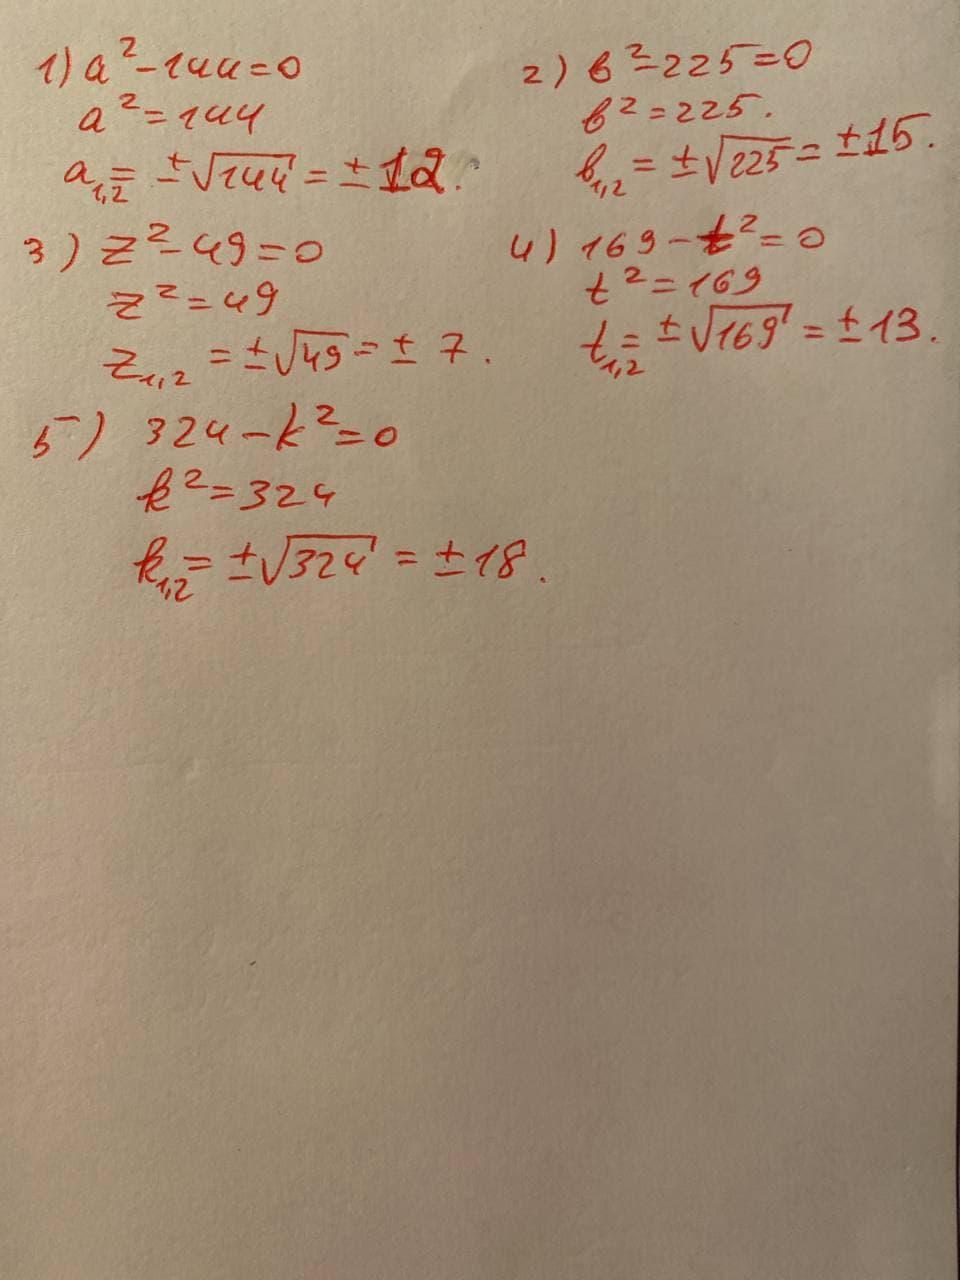 1) a² - 144 = 0
a² = 144
a₁,₂ = ±√144 = ±12.
2) в² - 225 = 0
в² = 225.
в₁,₂ = ±√225 = ±15.
3) z² - 49 = 0
z² = 49
z₁,₂ = ±√49 = ± 7.
4) 169 - t² = 0
t² = 169
t₁,₂ = ±√169 = ±13.
5) 324 - k² = 0
k² = 324
k₁,₂ = ±√324 = ±18.